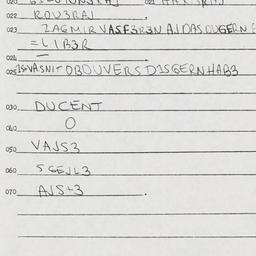 022 ROV3RAJ
023 ZAGMIRVASF3R3N AJDASDUGERN
=LIB3R
024
025 ISVASNIT OBOUVERSDISGERNHAB3
030 DUCENT
040 O
050 VAJS3
060 SGEJL3
070 AJS+3